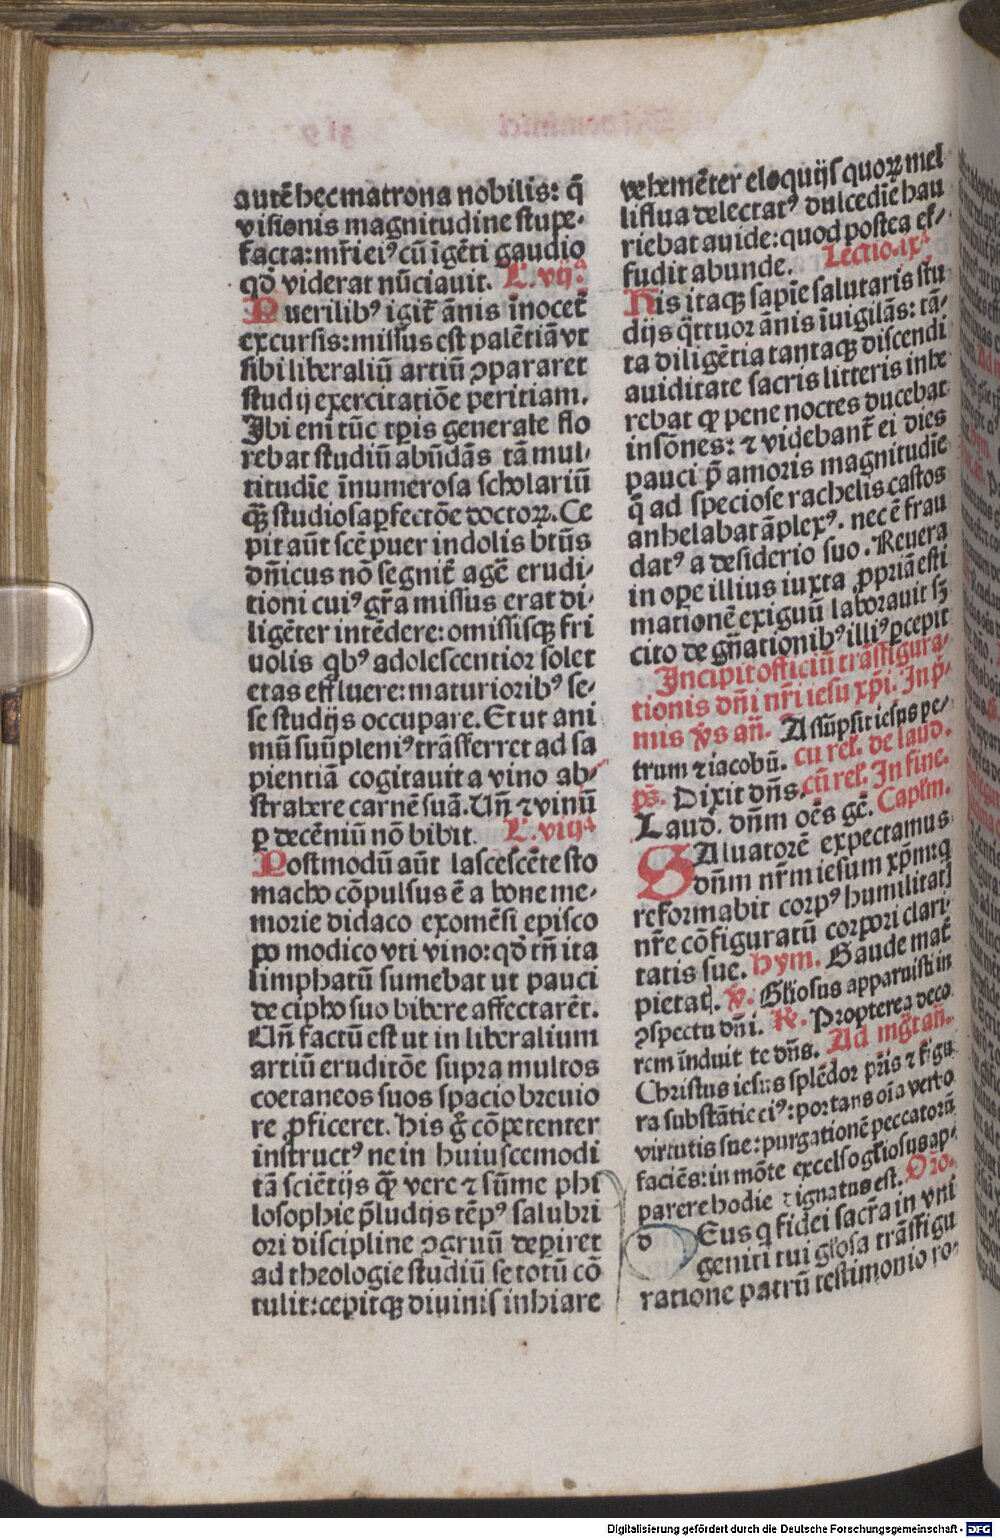 autē hec matrona nobilis: q̄
visionis magnitudine stupe-
facta: mr̄i eiꝰ cū īgēti gaudio
qd̄ viderat nūciauit. L. vijª
Puerilibꝰ igit̄ ānis īnocēt̄
excursis: missus est palētiā vt
sibi liberaliū artiū ꝯpararet
studij exercitatiōe peritiam.
Ibi eni tūc tp̄is generale flo
rebat studiū abūdās tā mul-
titudīe īnumerosa scholariū
q̄ꝫ studiosa ꝑfectōe doctoꝝ. Ce
pit aūt scē puer indolis btūs
dn̄icus nō segnit̄ agē erudi-
tioni cuiꝰ gr̄a missus erat di-
ligēter intēdere: omissisqꝫ fri
uolis qbꝰ adolescentior solet
etas effluere: maturioribꝰ se-
se studijs occupare. Et ut ani
mū suū pleniꝰ trāsferret ad sa
pientiā cogitauit a vino ab-
strahere carnē suā. Un̄ ⁊ vinū
ꝑ decēniū nō bibit. L. viijª
Postmodū aūt lascescēte sto
macho cōpulsus ē a bone me-
morie didaco exomēsi episco
po modico vti vino: qd̄ tn̄ ita
limphatū sumebat ut pauci
de cipho suo bibere affectarēt.
Un̄ factū est ut in liberalium
artiū eruditōe supra multos
coetaneos suos spacio breuio
re ꝓficeret. His g̊ cōpetenter
instructꝰ ne in huiuscemodi
tā sciētijs q̄ꝫ vere ⁊ sūme phi
losophie p̄ludijs tēpꝰ salubri
ori discipline ꝯgruū deperiret
ad theologie studiū se totū cō
tulit: cepitqꝫ diuinis inhiare
vehemēter eloquijs quoꝝ mel
liflua delectatꝰ dulcedīe hau
riebat auide: quod postea ef-
fudit abunde. Lectio. ixª
His itaqꝫ sapīe salutaris stu
dijs q̄ttuor ānis īuigilās: tā-
ta diligētia tantaqꝫ discendi
auiditate sacris litteris inhe
rebat ꝙ pene noctes ducebat
insōnes: ⁊ videbant̄ ei dies
pauci p̄ amoris magnitudīe
q̄ ad speciose rachelis castos
anhelabat āplexꝰ. nec ē frau
datꝰ a desiderio suo. Reuera
in ope illius iuxta ꝓpriā esti
mationē exiguū laborauit sꝫ
cito de gn̄ationibꝰ illiꝰ ꝑcepit
Incipit officiū trāsfigura-
tionis dn̄i nr̄i iesu xp̄i. In p̄-
mis v̄s an̄. Assūpsit iesus pe-
trum ⁊ iacobū. cū rel. de laud.
ps̄. Dixit dn̄s. cū rel. In fine.
Laud. dn̄m oēs gē. Caplm.
SAluatorē expectamus
dn̄m nr̄m iesum xp̄m: q
reformabit corpꝰ humilitatꝭ
nr̄e cōfiguratū corpori clari
tatis sue. hym. Gaude mat̄
pietatꝭ. ℣. Gl̄iosus apparuisti in
ꝯspectu dn̄i. ℟. Propterea deco
rem īnduit te dn̄s. Ad mg̊t an̄.
Christus iesus splēdor pr̄is ⁊ figu
ra substātie eiꝰ: portans oīa verbo
virtutis sue: purgationē peccatorū
faciēs: in mōte excelso gl̄iosus ap-
parere hodie dignatus est. Or̄o.
dEus q fidei sacr̄a in vni
geniti tui gl̄osa trāsfigu
ratione patrū testimonio ro-
Digitalisierung gefördert durch die Deutsche Forschungsgemeinschaft - DFG